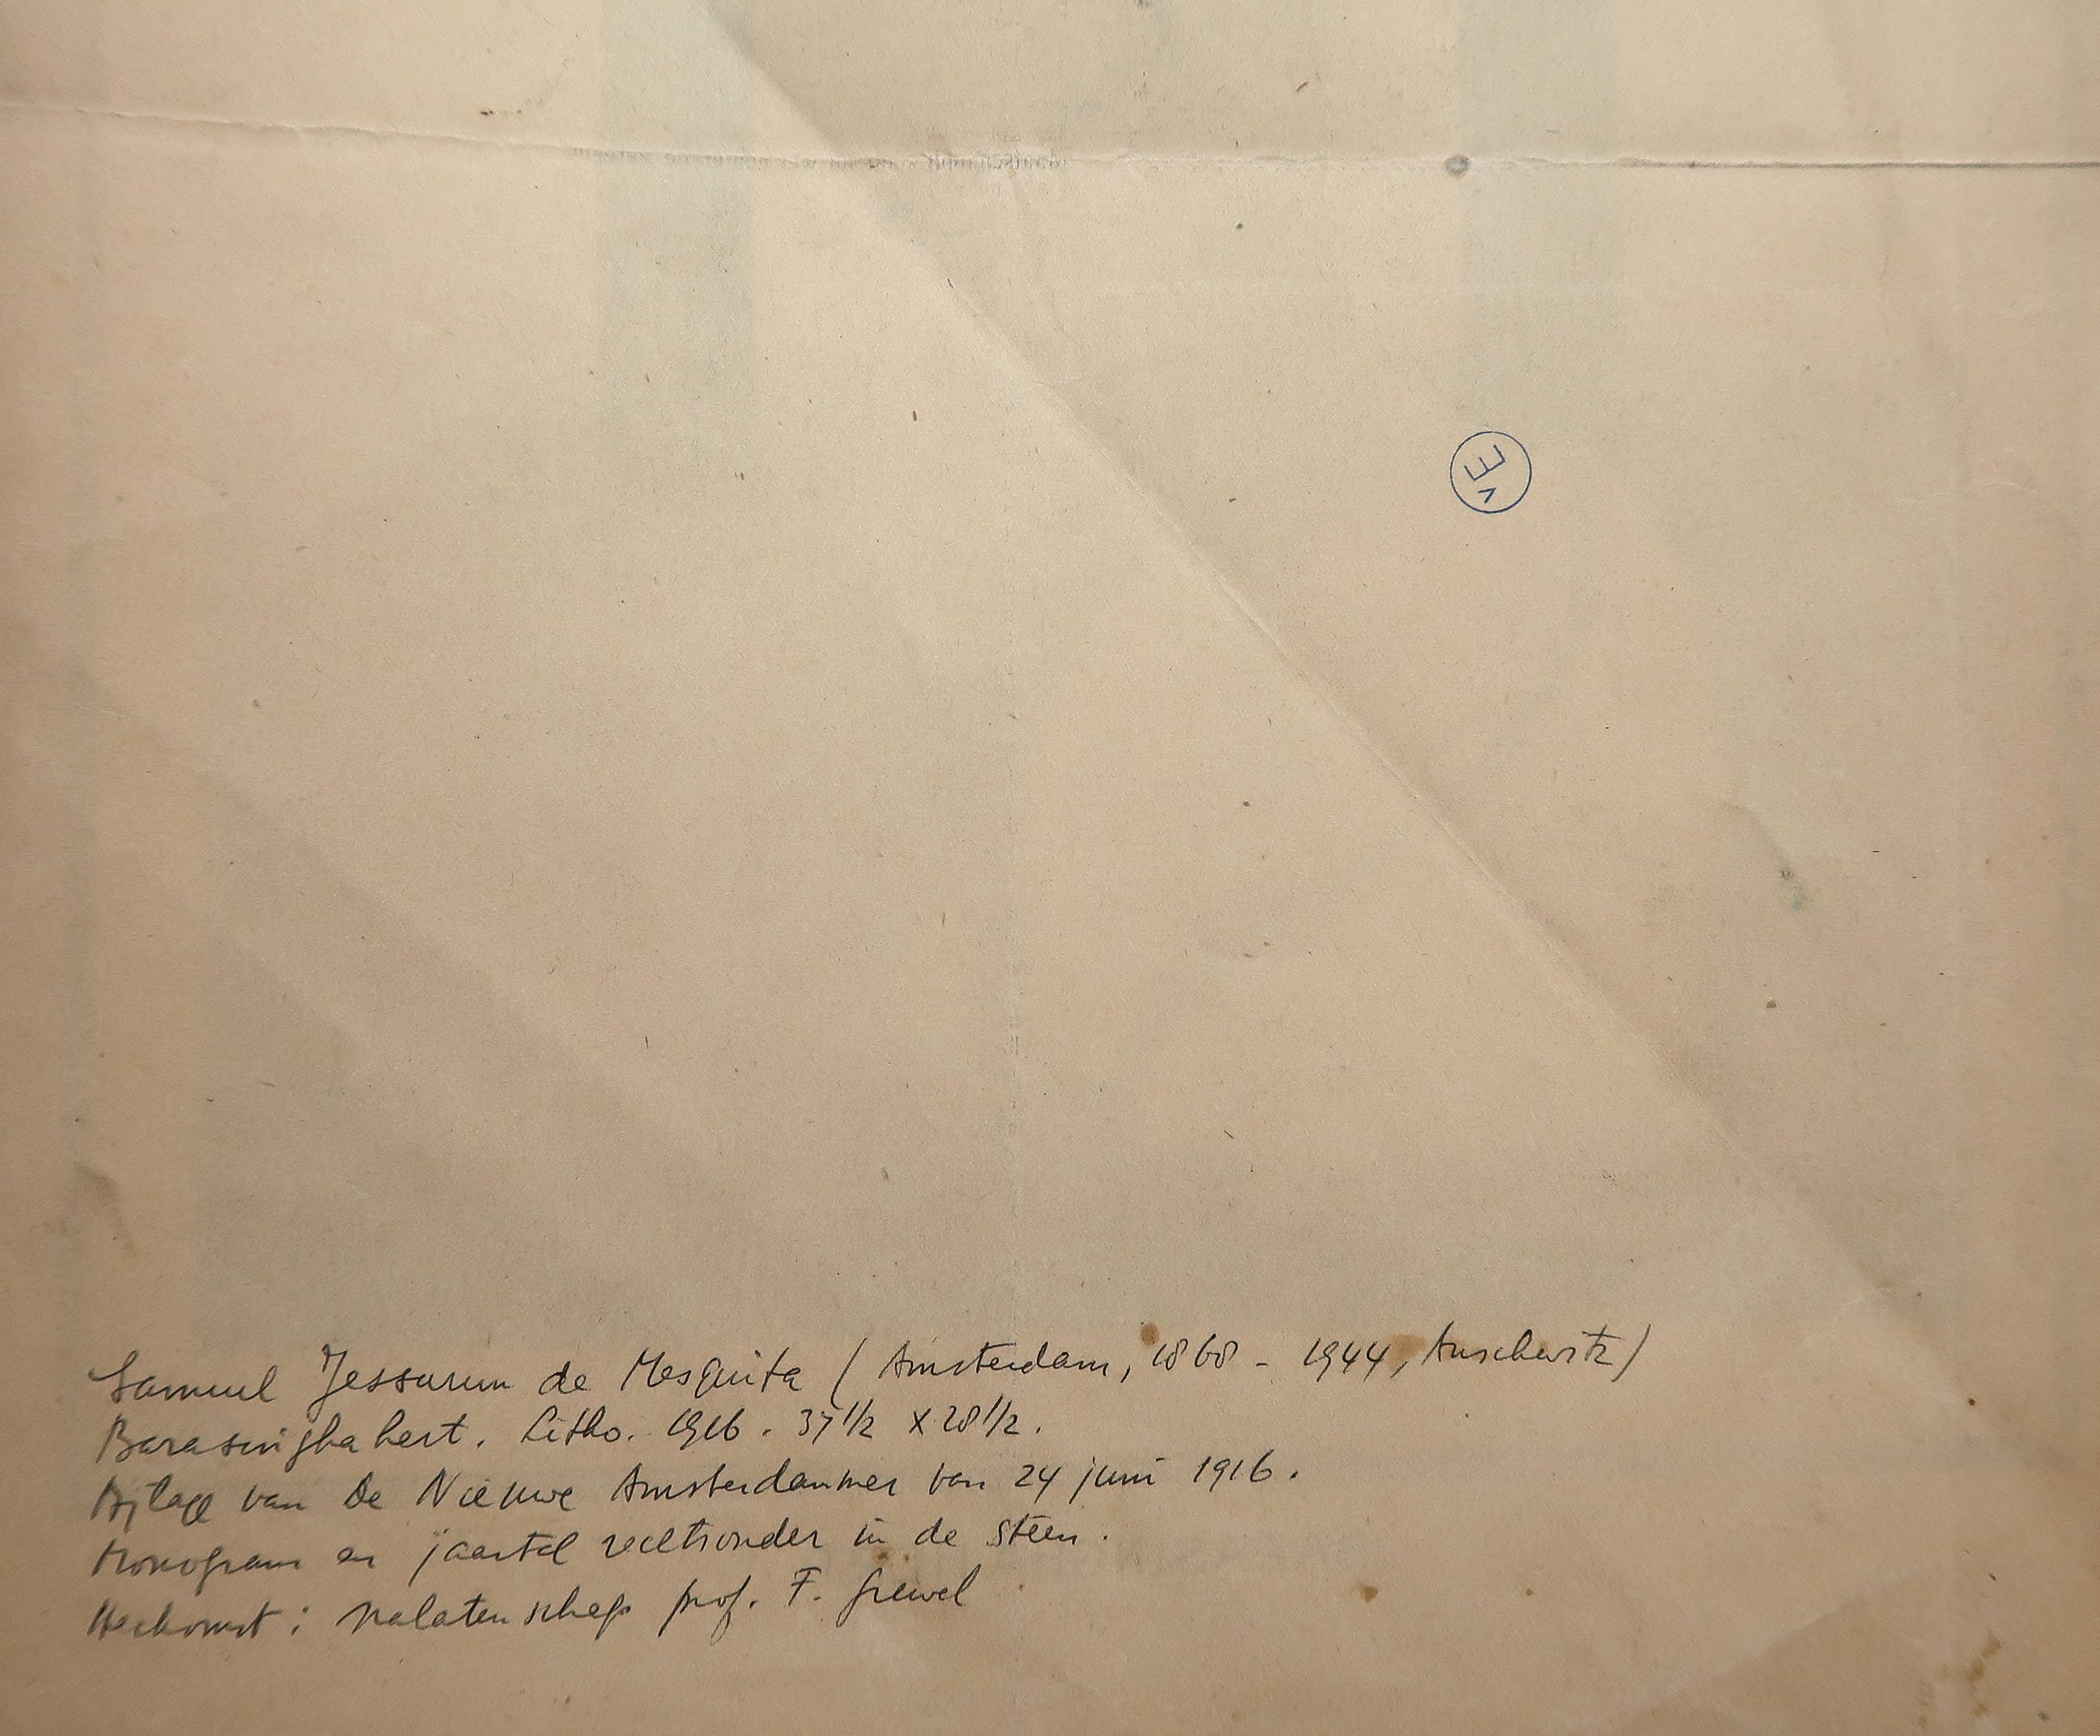 VE
Samuel Jessurun de Mesquita (Amsterdam, 1868 - 1944, Auschwitz)
Barasinghahert. Litho. 1916. 37 1/2 x 28 1/2.
Bijlage van De Nieuwe Amsterdammer van 24 juni 1916.
Monogram en jaartal rechtsonder in de steen.
Herkomst: nalatenschap prof. F. Grewel